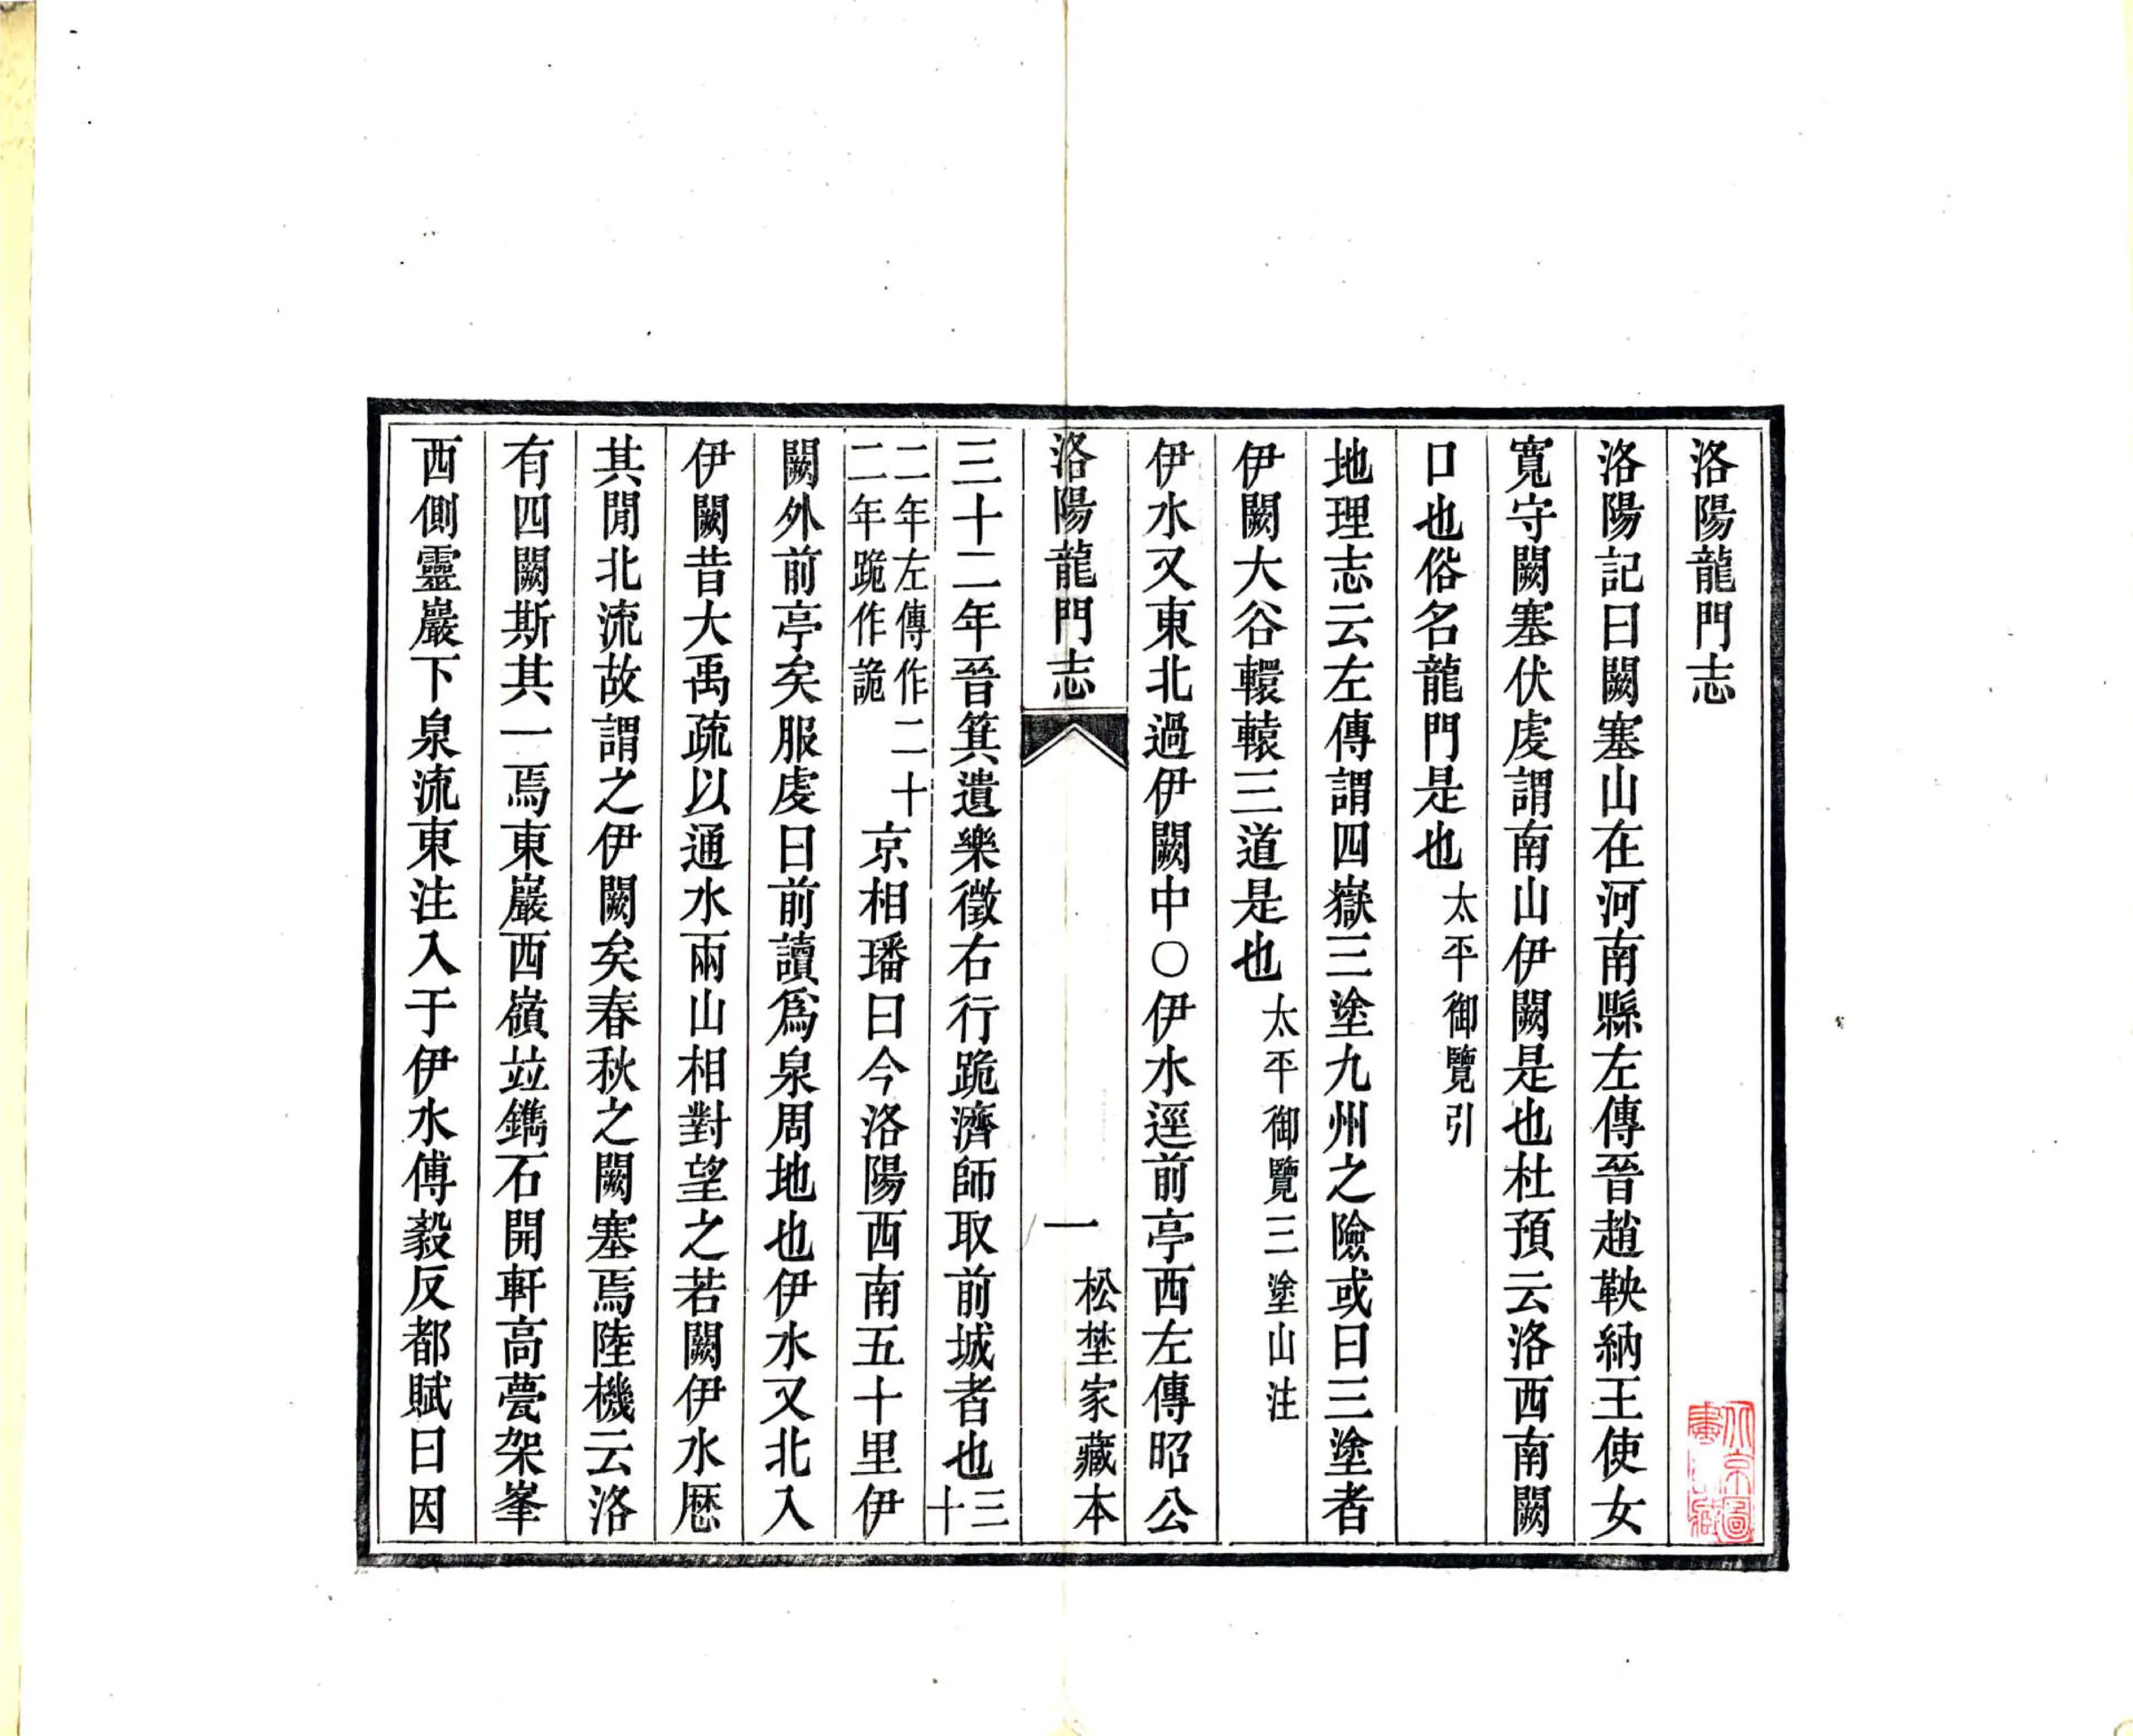 洛陽龍門志
洛陽記曰闕塞山在河南縣左傳晉趙鞅納王使女
寬守闕塞伏虔謂南山伊闕是也杜預云洛西南闕
口也俗名龍門是也太平御覽引
地理志云左傳謂四嶽三塗九州之險或曰三塗者
伊闕大谷轘轅三道是也太平御覽三塗山注
伊水又東北過伊闕中〇伊水逕前亭西左傳昭公
洛陽龍門志
一
松埜家藏本
三十二年晉箕遺樂徵右行跪濟師取前城者也三十
二年左傳作二十
二年跪作詭
京相璠曰今洛陽西南五十里伊
闕外前亭矣服虔曰前讀爲泉周地也伊水又北入
伊闕昔大禹疏以通水兩山相對望之若闕伊水歷
其閒北流故謂之伊闕矣春秋之闕塞焉陸機云洛
有四闕斯其一焉東巖西嶺竝鐫石開軒高甍架峯
西側靈巖下泉流東注入于伊水傅毅反都賦曰因